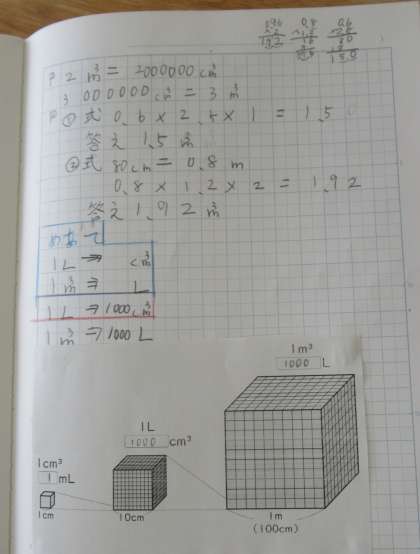 P 2m³=2000000cm³
3000000cm³=3m³
P ①式 0.6×2.5×1=1.5
答え 1.5m³
②式 80cm=0.8m
0.8×1.2×2=1.92
答え 1.92m³
めあて
1L⇒ cm³
1m³⇒ L
1L⇒1000cm³
1m³⇒1000L
1m³
1000 L
1L
1000 cm³
1cm³
1 mL
1cm
10cm
1m
(100cm)